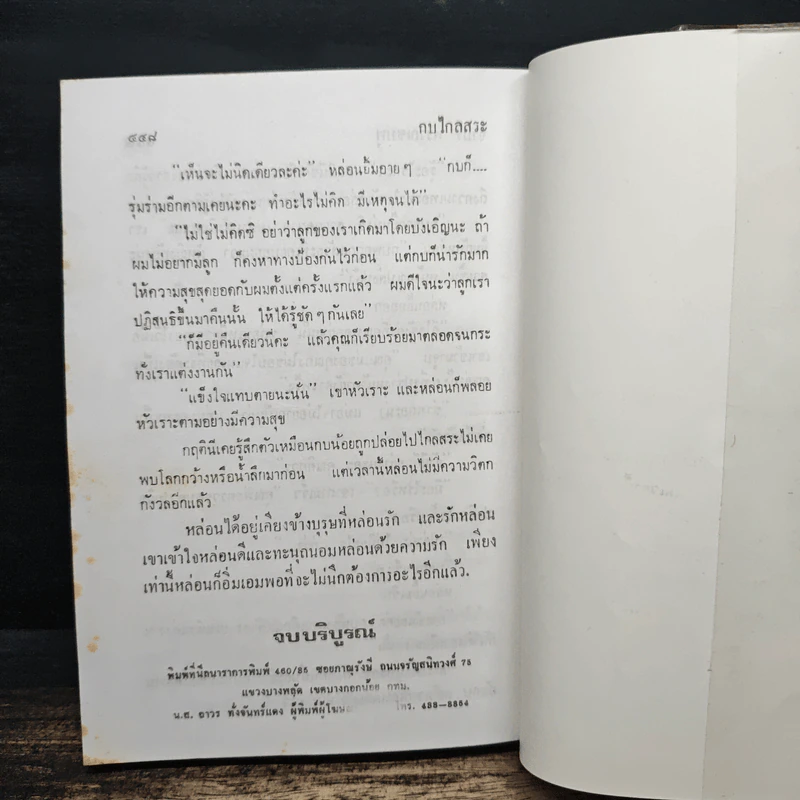 ๔๔๘ กบไกลสระ
"เห็นจะไม่นิดเดียวละค่ะ" หล่อนยิ้มอายๆ "กบก็....
รุ่มร่ามอีกตามเคยนะคะ ทำอะไรไม่คิด มีเหตุจนได้"
"ไม่ใช่ไม่คิดซิ อย่าว่าลูกของเราเกิดมาโดยบังเอิญนะ ถ้า
ผมไม่อยากมีลูก ก็คงหาทางป้องกันไว้ก่อน แต่กบก็น่ารักมาก
ให้ความสุขสุดยอดกับผมตั้งแต่ครั้งแรกแล้ว ผมดีใจนะว่าลูกเรา
ปฏิสนธิขึ้นมาคืนนั้น ให้ได้รู้ชัดๆกันเลย"
"ก็มีอยู่คืนเดียวนี่คะ แล้วคุณก็เรียบร้อยมาตลอดจนกระ
ทั่งเราแต่งงานกัน"
"แข็งใจแทบตายนะนั่น" เขาหัวเราะ และหล่อนก็พลอย
หัวเราะตามอย่างมีความสุข
กฤตินีเคยรู้สึกตัวเหมือนกบน้อยถูกปล่อยไปไกลสระไม่เคย
พบโลกกว้างหรือน้ำลึกมาก่อน แต่เวลานี้หล่อนไม่มีความวิตก
กังวลอีกแล้ว
หล่อนได้อยู่เคียงข้างบุรุษที่หล่อนรัก และรักหล่อน
เขาเข้าใจหล่อนดีและทะนุถนอมหล่อนด้วยความรัก เพียง
เท่านี้หล่อนก็อิ่มเอมพอที่จะไม่นึกต้องการอะไรอีกแล้ว.
จบบริบูรณ์
พิมพ์ที่นีลนาราการพิมพ์ 460/86 ซอยภาณุรังษี ถนนจรัญสนิทวงศ์ 75
แขวงบางพลัด เขตบางกอกน้อย กทม.
น.ส. ถาวร ทั่งจันทร์แดง ผู้พิมพ์ผู้โฆษณา โทร.